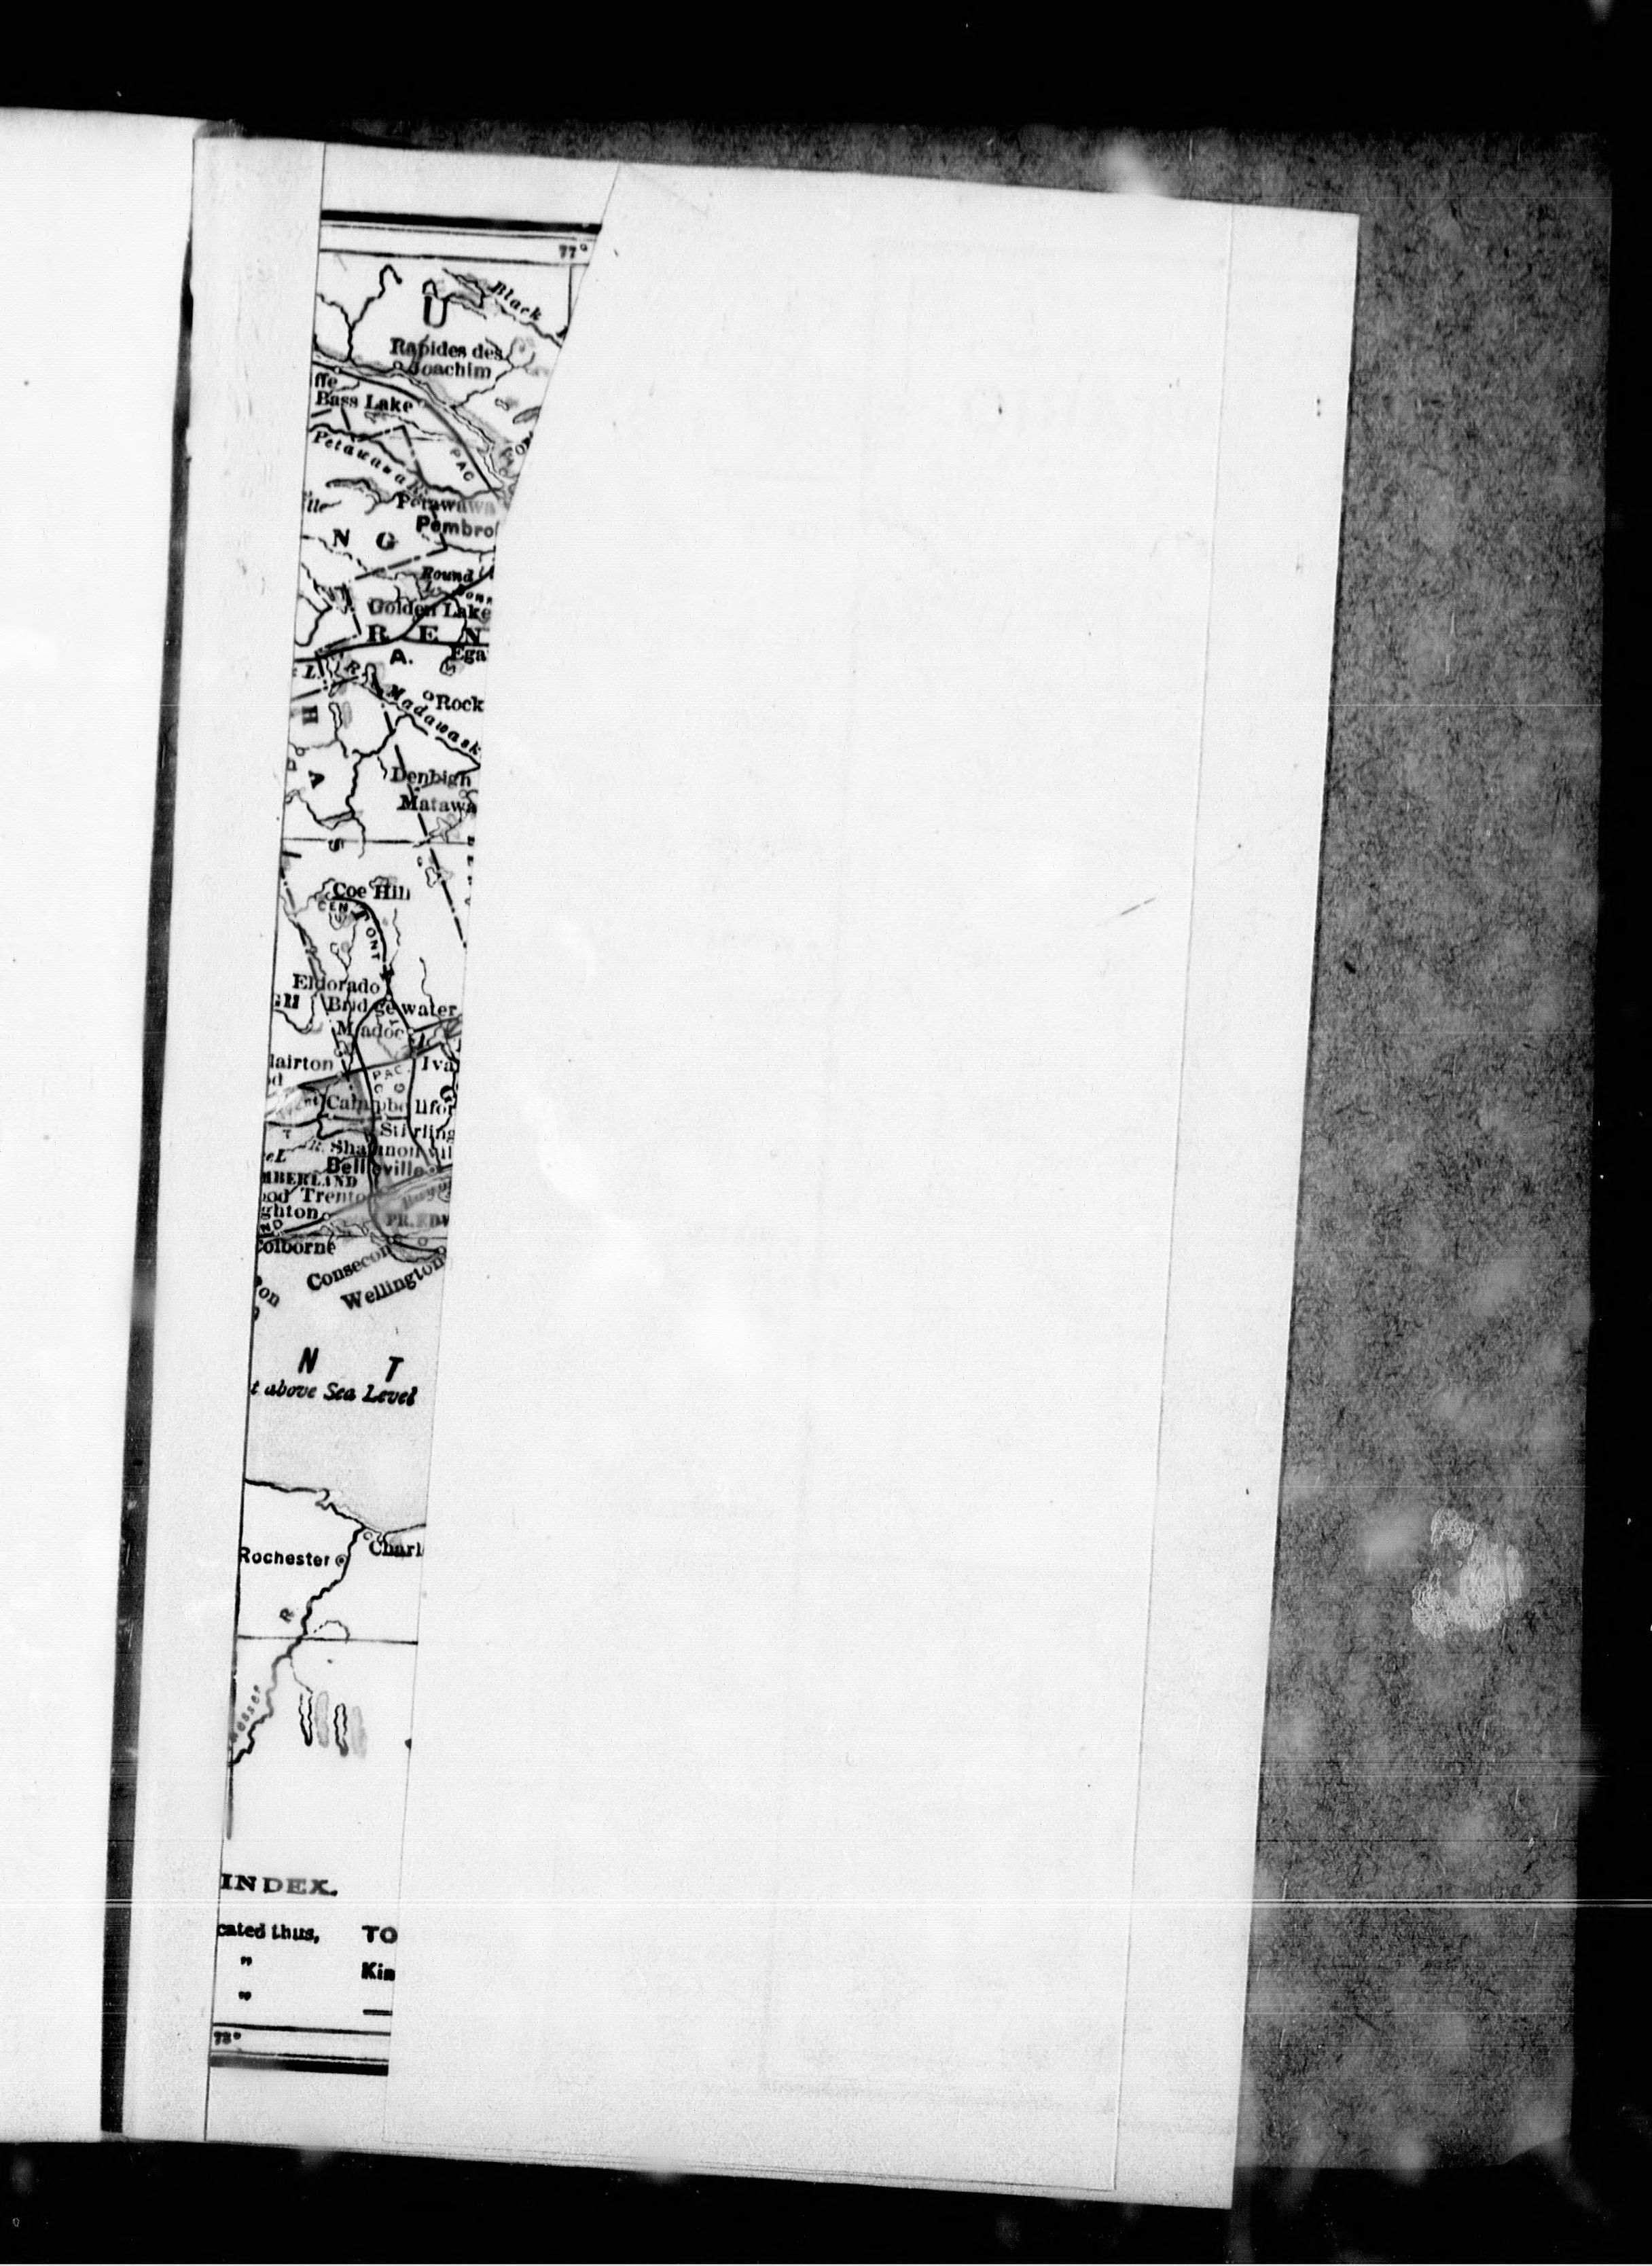 77°
U
Black
Rapides des
Joachim
ffe
Bass Lake
Petawawa R.
PAC
lle
Petawawa
Pembro
N G
Round
Golden Lake
R E N
A.
Ega
L.
R
Rock
Madawask
H
A
Denbigh
Matawa
S
Coe Hill
CEN
ONT
Eldorado
Bridgewater
Madoc
lairton
Iva
PAC.
Campbe llfor
Stirling
R.
Shannonvil
Belleville
MBERLAND
ood Trento
ghton
PR. EDW
Colborne
Consecon
Wellington
on
N T
t above Sea Level
Rochester
Charl
R
nessee
INDEX.
cated thus, TO
" Kin
"
78°